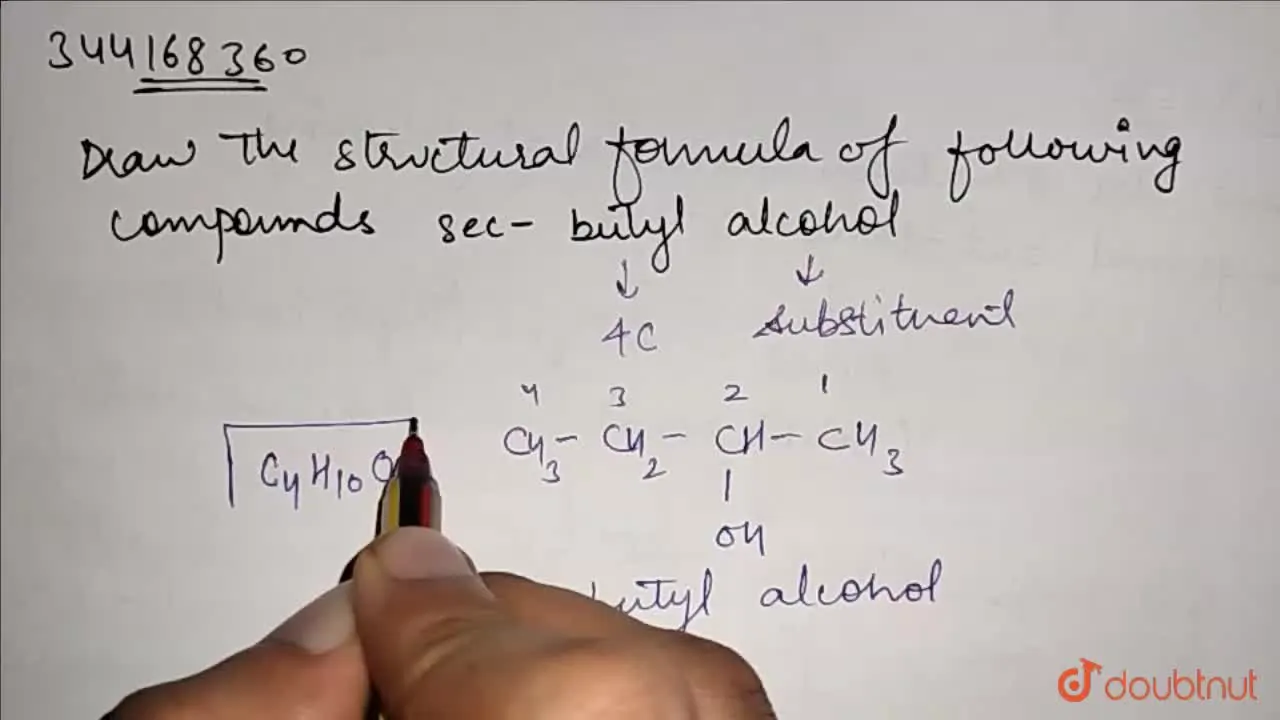 344168360
Draw The structural formula of following
compounds sec- butyl alcohol
↓ ↓
4C substituent
4 3 2 1
CH3- CH2 - CH- CH3
|
OH
C4H10O
butyl alcohol
doubtnut